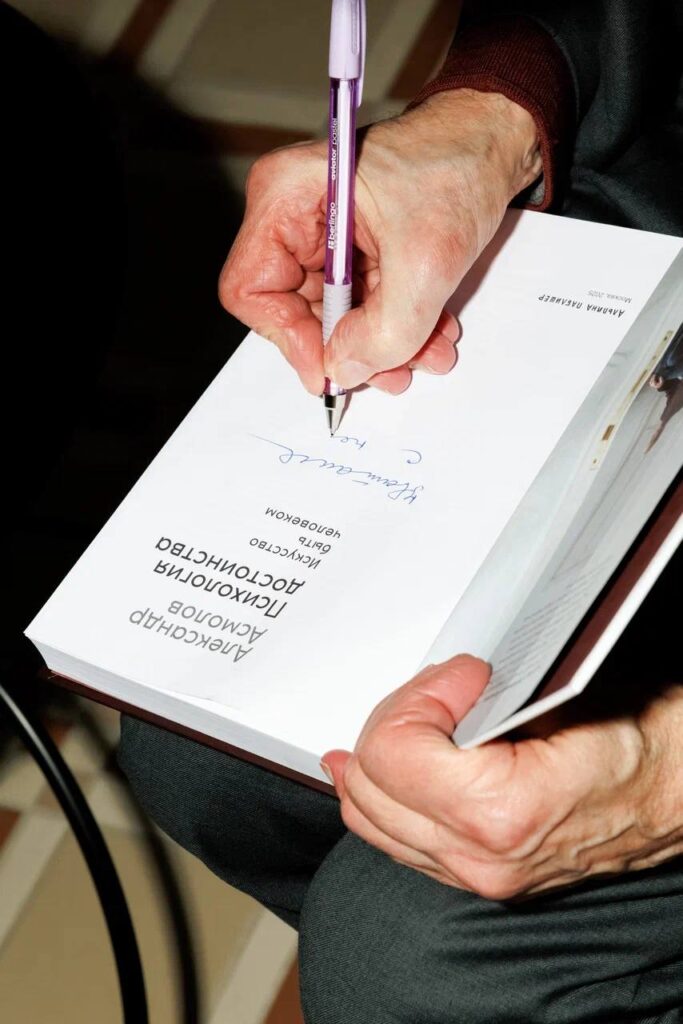 Александр
Асмолов
Психология
достоинства
Искусство
быть
человеком
Наташе
с не
Альпина Паблишер
Москва, 2025
berlingo aviator pastel